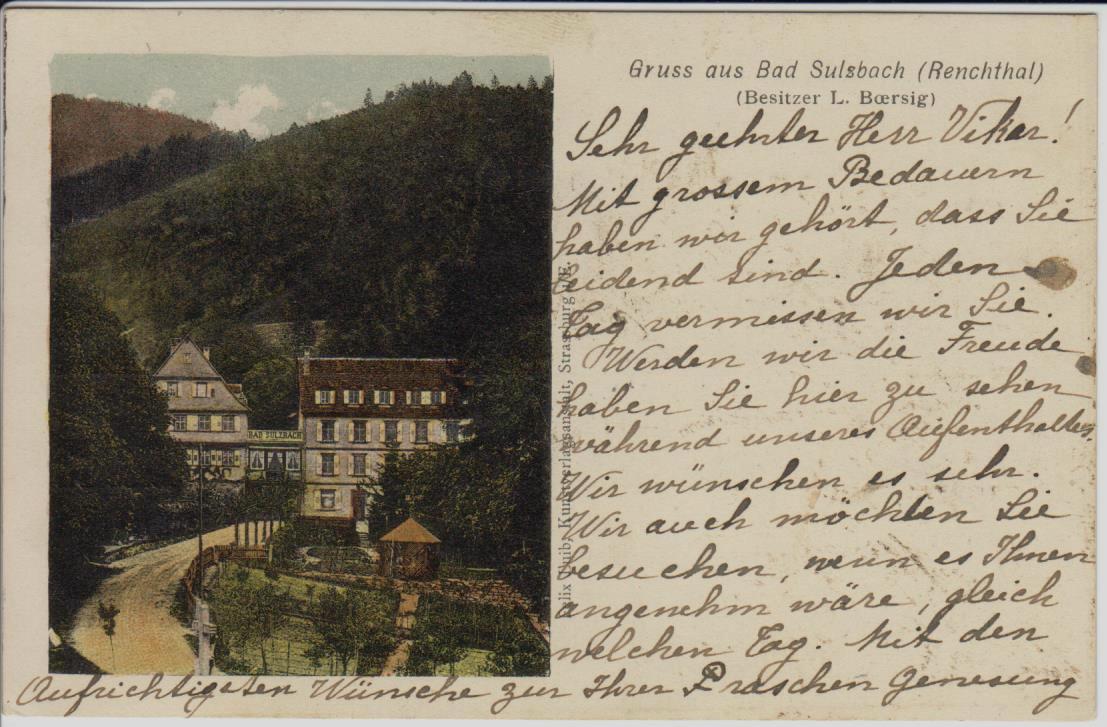 Gruss aus Bad Sulzbach (Renchthal)
(Besitzer L. Bœrsig)
Sehr geehrter Herr Vikar!
Mit grossem Bedauern
haben wir gehört, dass Sie
leidend sind. Jeden
Tag vermissen wir Sie.
Werden wir die Freude
haben Sie hier zu sehen
während unseres Aufenthaltes.
Wir wünschen es sehr.
Wir auch möchten Sie
besuchen, wenn es Ihnen
angenehm wäre, gleich
welchen Tag. Mit den
Aufrichtigsten Wünsche zur Ihrer Praschen Genesung
Kunstverlagsanstalt, Strassburg i/E.
BAD SULZBACH